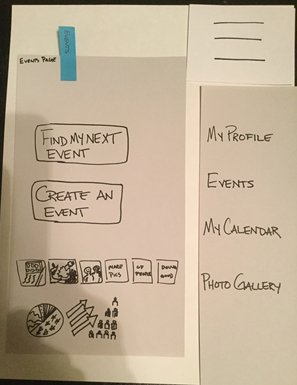 EVENTS PAGE
FIND MY NEXT
EVENT
CREATE AN
EVENT
MORE
PICS
OF
PEOPLE
DOING
GOOD
MY PROFILE
EVENTS
MY CALENDAR
PHOTO GALLERY